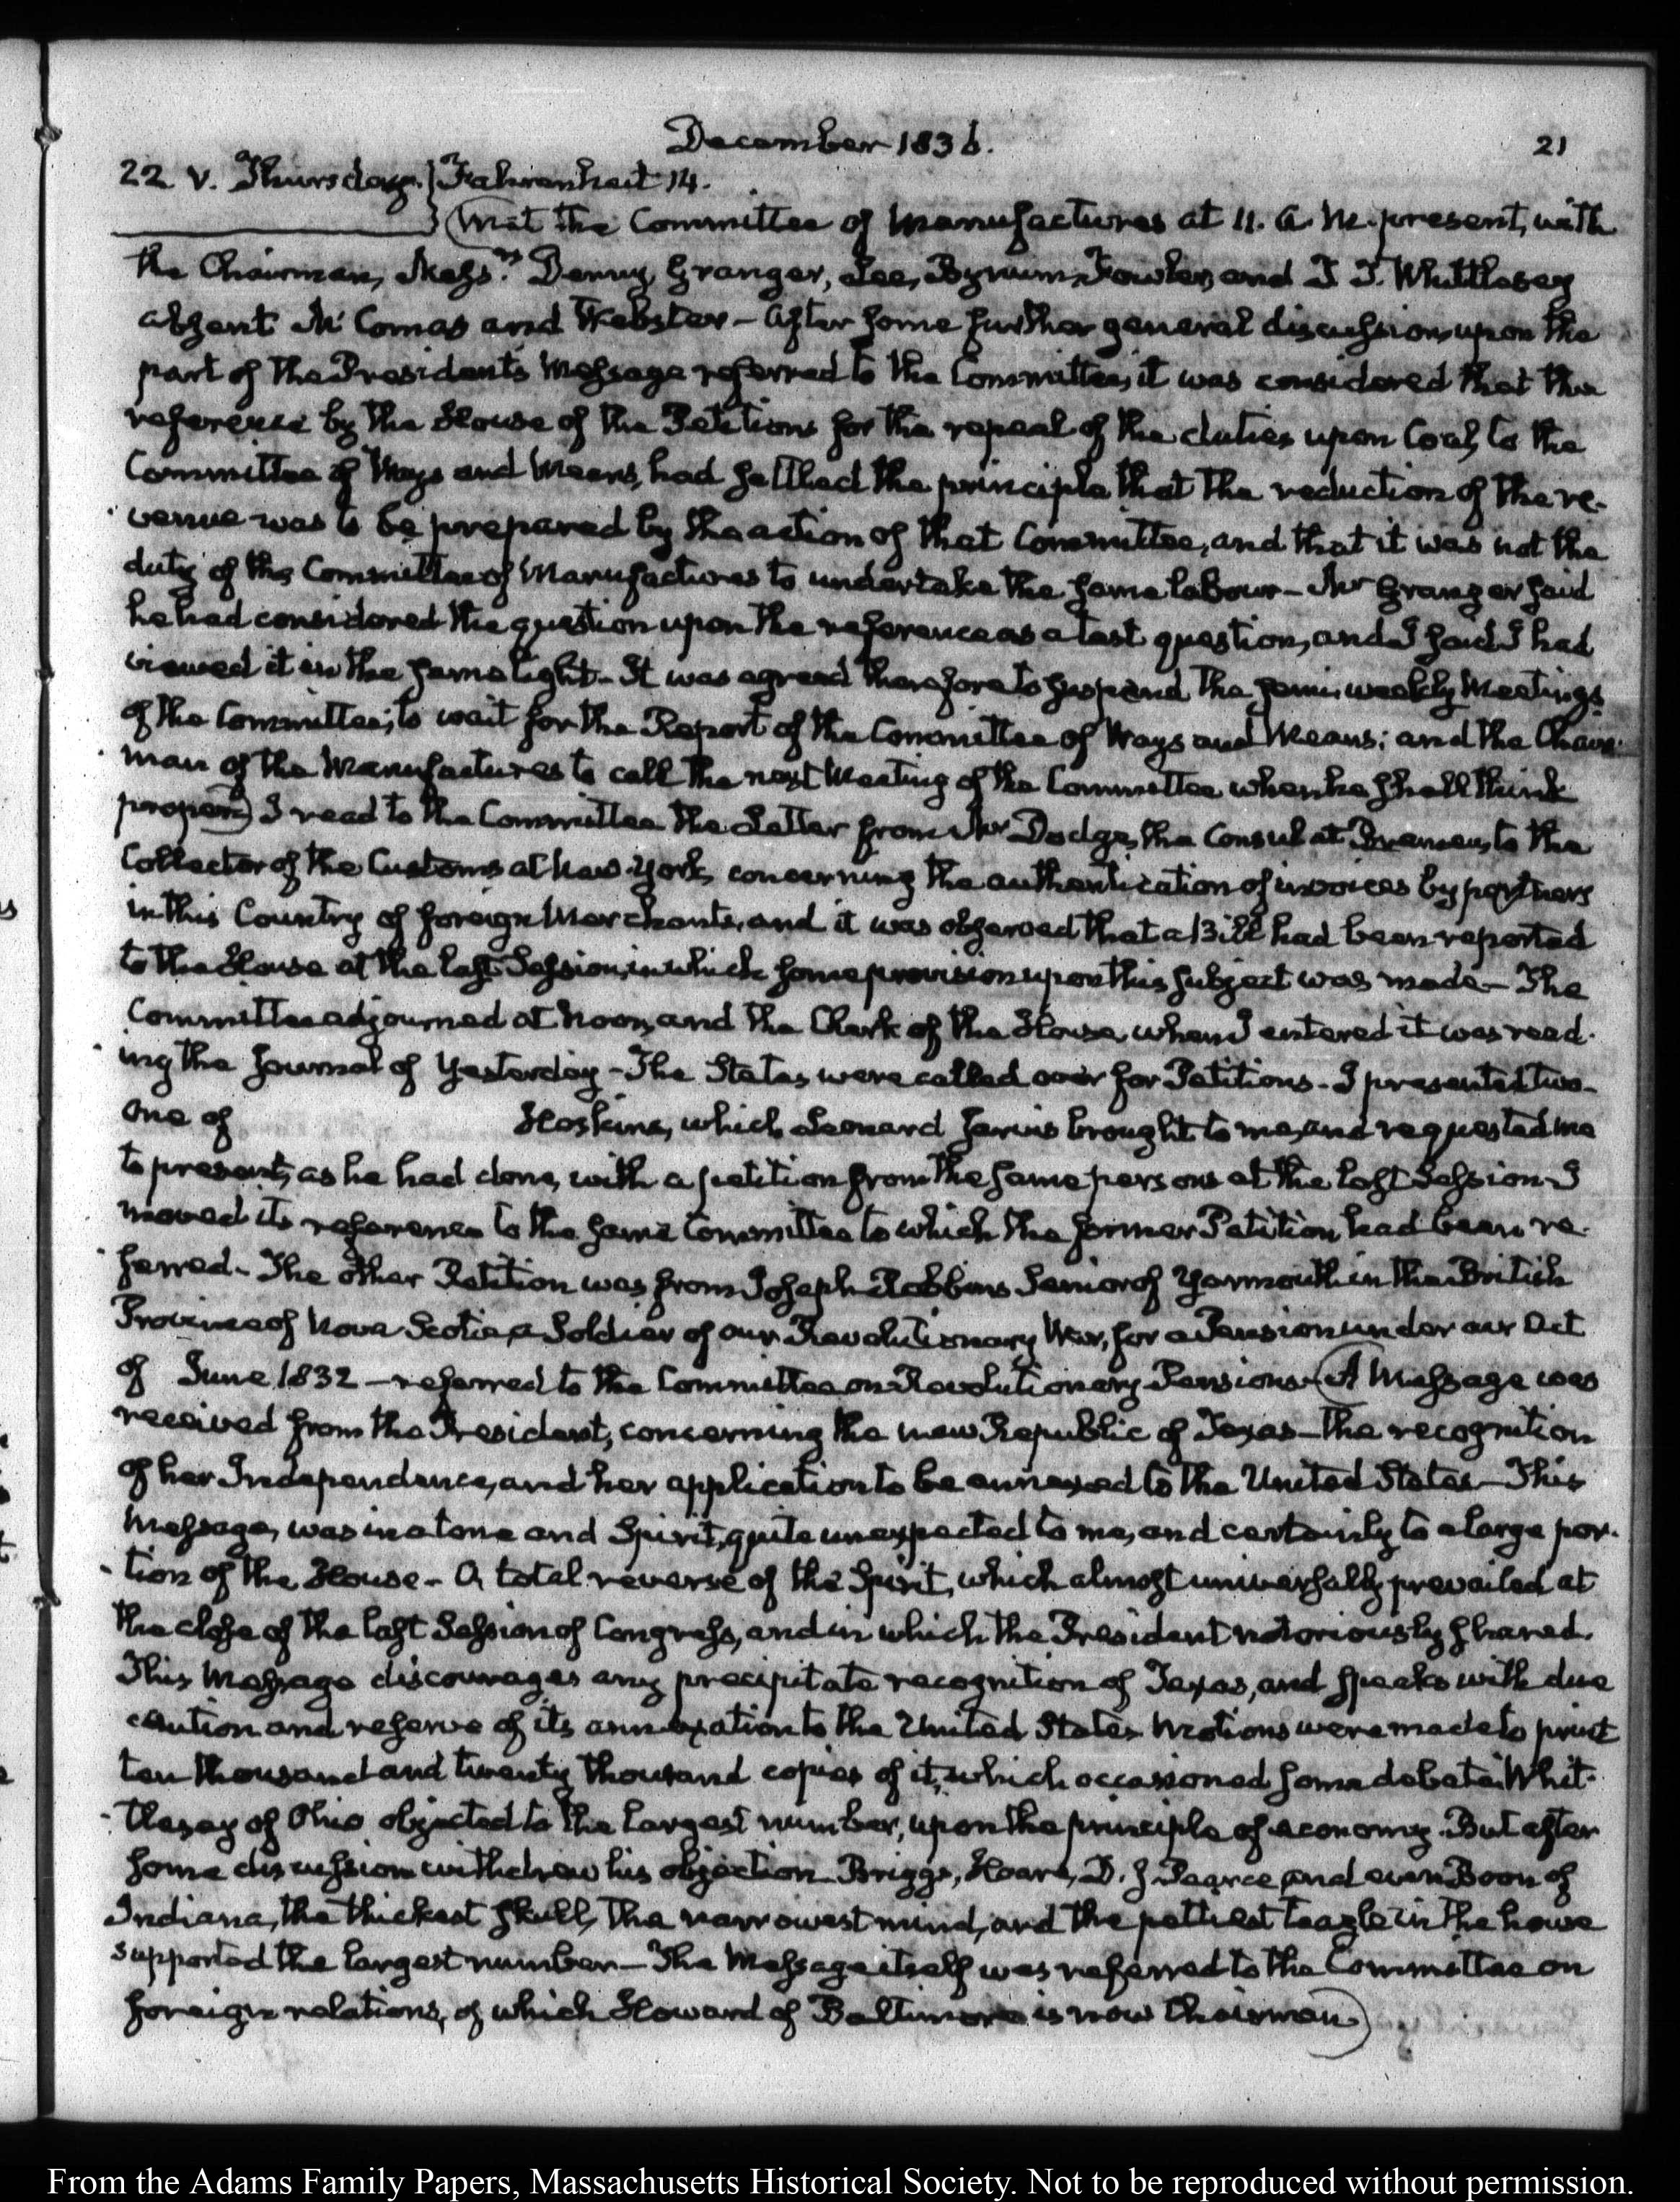 December 1836.
21
22. V. Thursday. } Fahrenheit 14.
} (Met the Committee of Manufactures at 11. A.M. present, with
the Chairman, Mess.rs Denny, Granger, Lee, Bynum, Fowler, and T. T. Whittlesey
absent McComas and Webster — After some further general discussion upon the
part of the President's Message referred to the Committee, it was considered that the
reference by the House of the Petitions for the repeal of the duties upon Coal, to the
Committee of Ways and Means, had settled the principle that the reduction of the re-
venue was to be prepared by the action of that Committee, and that it was not the
duty of the Committee of Manufactures to undertake the same labour — Mr Granger said
he had considered the question upon the reference as a test question, and I said I had
viewed it in the same light — It was agreed therefore to suspend the semi-weekly Meetings
of the Committee; to wait for the Report of the Committee of Ways and Means; and the Chair-
man of the Manufactures to call the next Meeting of the Committee when he shall think
proper.) I read to the Committee the Letter from Mr Dodge, the Consul at Bremen, to the
Collector of the Customs at New-York, concerning the authentication of invoices by partners
in this Country of foreign Merchants, and it was observed that a Bill had been reported
to the House at the last Session, in which some provision upon this subject was made — The
Committee adjourned at Noon, and the Clerk of the House, when I entered it was read-
ing the Journal of Yesterday — The States were called over for Petitions — I presented two —
One of Hoskins, which Leonard Jarvis brought to me, and requested me
to present, as he had done, with a petition from the same persons at the last Session — I
moved its reference to the same Committee to which the former Petition had been re-
ferred — The other Petition was from Joseph Robbins Senior of Yarmouth in the British
Province of Nova Scotia, a Soldier of our Revolutionary War, for a Pension under our Act
of June 1832 — referred to the Committee on Revolutionary Pensions. (A Message was
received from the President, concerning the new Republic of Texas — the recognition
of her Independence, and her application to be annexed to the United States — This
Message, was in a tone and Spirit, quite unexpected to me, and certainly to a large por-
tion of the House — A total reverse of the Spirit, which almost universally prevailed at
the close of the last Session of Congress, and in which the President notoriously shared.
This Message discourages any precipitate recognition of Texas, and speaks with due
caution and reserve of its annexation to the United States. Motions were made to print
ten thousand and twenty thousand copies of it, which occasioned some debate. Whit-
tlesey of Ohio objected to the largest number, upon the principle of economy. But after
some discussion withdrew his objection. Briggs, Hoare, D. J. Pearce and even Boon of
Indiana, the thickest skull, the narrowest mind, and the pettiest teazle in the house
supported the largest number — The Message itself was referred to the Committee on
foreign relations, of which Howard of Baltimore is now Chairman)
From the Adams Family Papers, Massachusetts Historical Society. Not to be reproduced without permission.